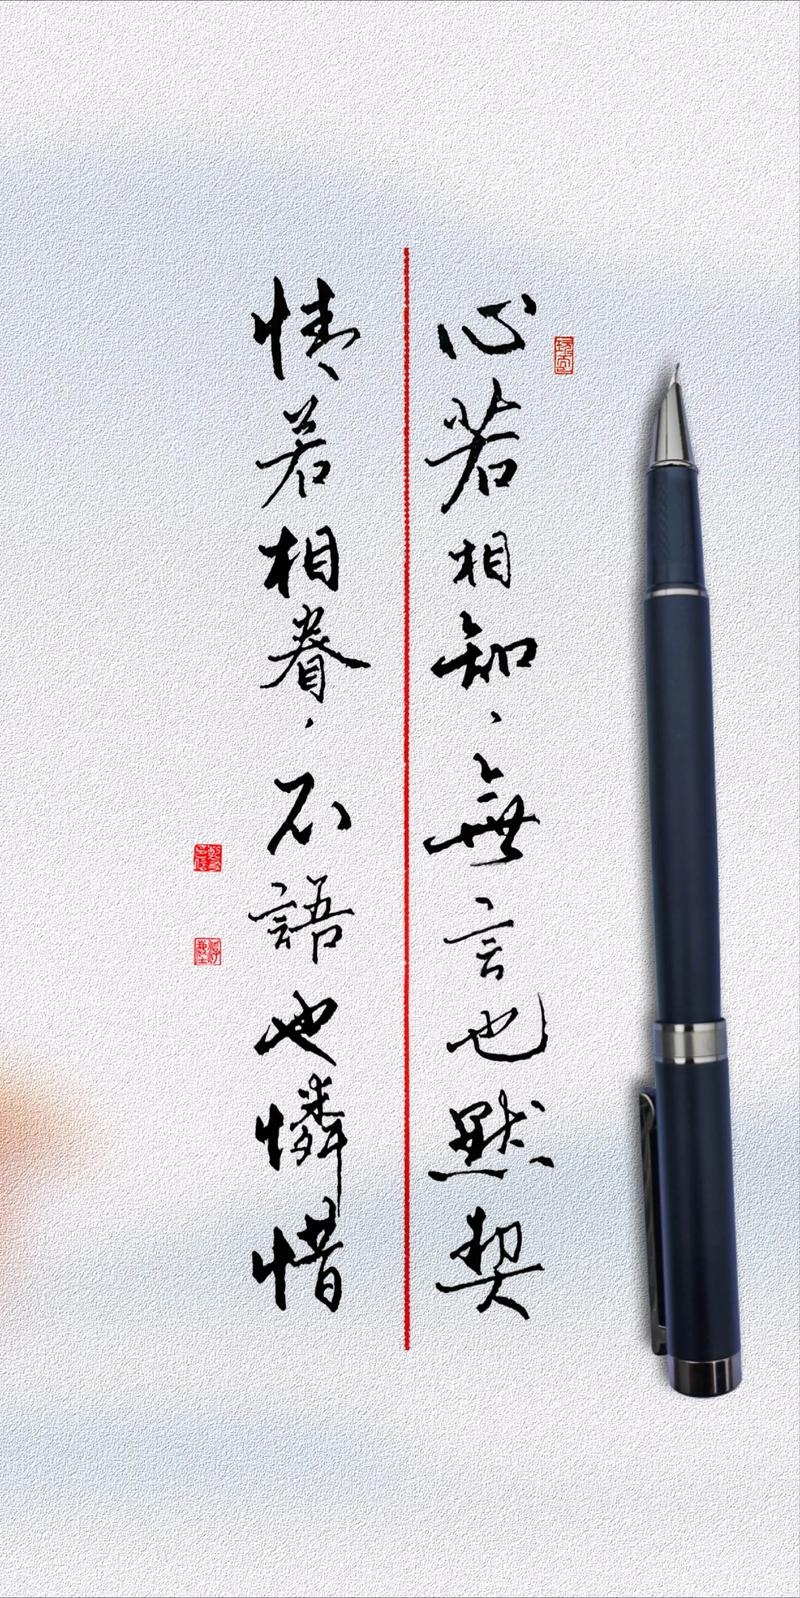 心若相知，無言也默契
情若相眷，不語也憐惜